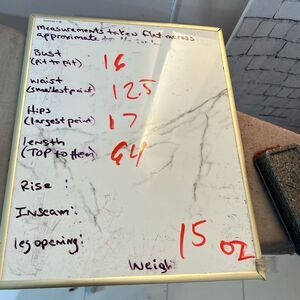 measurements taken flat across
approximate to
Bust
(Pit to pit) : 16
waist
(smallest point) : 12.5
Hips
(largest point) : 17
length
(TOP to Hem) 64
Rise :
Inseam :
leg opening :
15 oz
Weigh